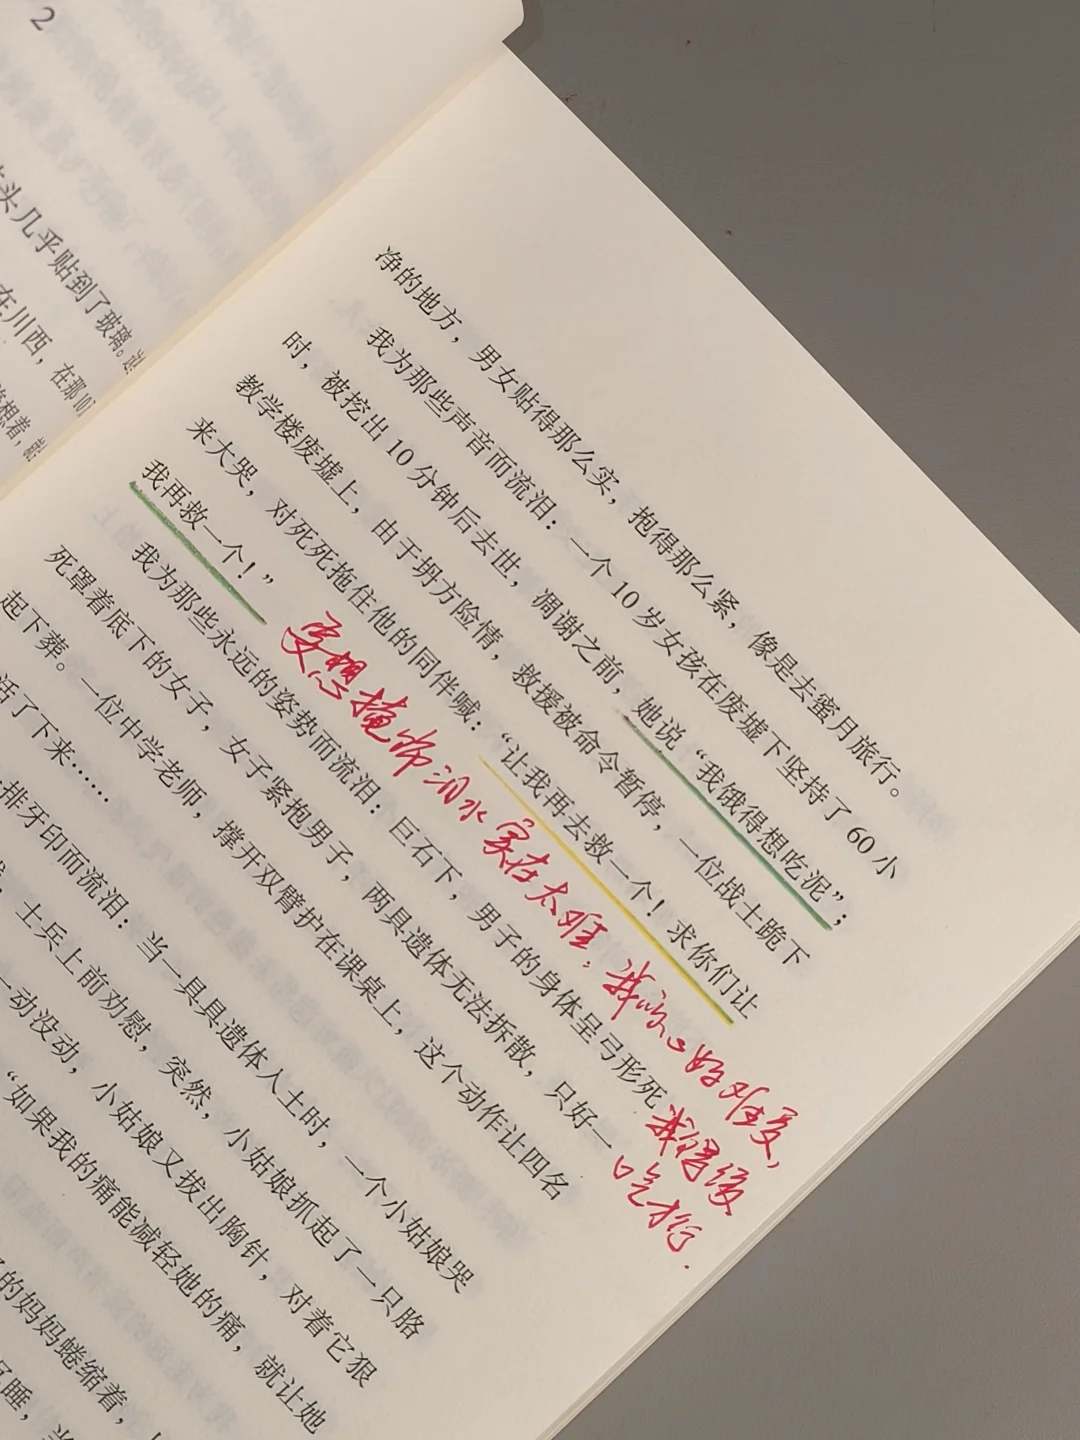 2
头几乎贴到了玻璃。
在川西，在那107
想着，
净的地方，男女贴得那么实，抱得那么紧，像是去蜜月旅行。
我为那些声音而流泪：一个10岁女孩在废墟下坚持了60小
时，被挖出10分钟后去世，凋谢之前，她说“我饿得想吃泥”；
教学楼废墟上，由于坍方险情，救援被命令暂停，一位战士跪下
来大哭，对死死拖住他的同伴喊：“让我再去救一个！求你们让
我再救一个！”
要想掩饰泪水实在太难，我的心好难受，
我得缓
口气才行.
我为那些永远的姿势而流泪：巨石下，男子的身体呈弓形死
死罩着底下的女子，女子紧抱男子，两具遗体无法拆散，只好一
起下葬。一位中学老师，撑开双臂护在课桌上，这个动作让四名
活了下来……
排牙印而流泪：当一具具遗体入土时，一个小姑娘哭
士兵上前劝慰，突然，小姑娘抓起了一只胳
一动没动，小姑娘又拔出胸针，对着它狠
“如果我的痛能减轻她的痛，就让她
的妈妈蜷缩着，
睡，